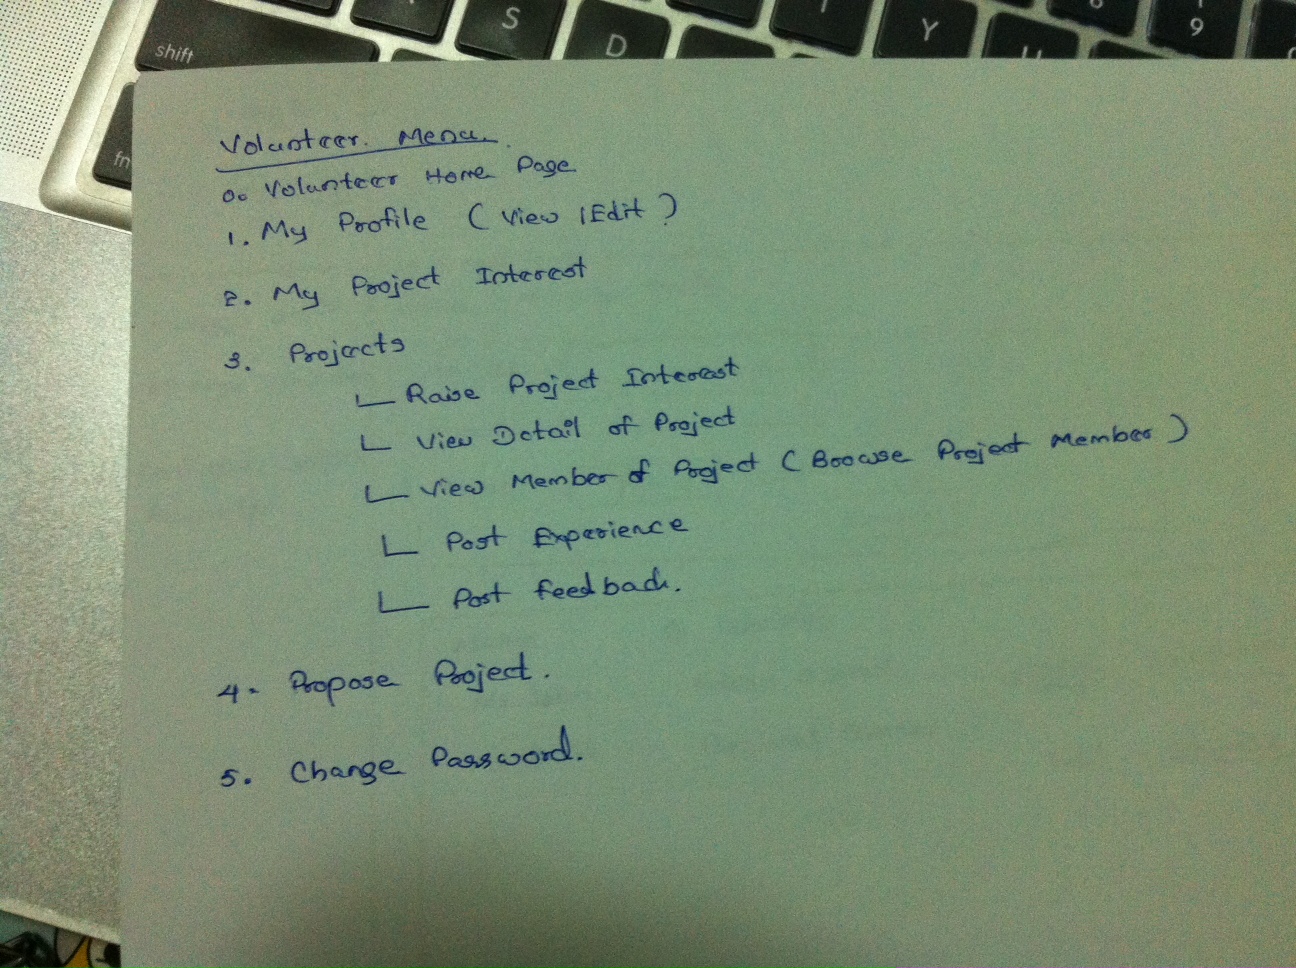 Volunteer Menu.
0. Volunteer Home Page
1. My Profile (View / Edit)
2. My Project Interest
3. Projects
Raise Project Interest
View Detail of Project
View Member of Project (Browse Project Member)
Post Experience
Post Feedback.
4. Propose Project.
5. Change Password.
fn
shift
S
D
Y
9